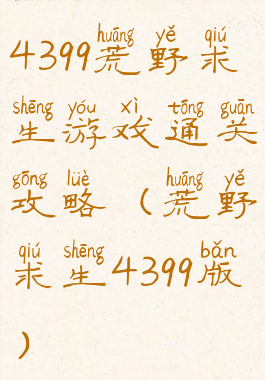 huāng yě qiú
4399荒野求
shēng yóu xì tōng guān
生游戏通关
gōng lüè huāng yě
攻略（荒野
qiú shēng bǎn
求生4399版
）